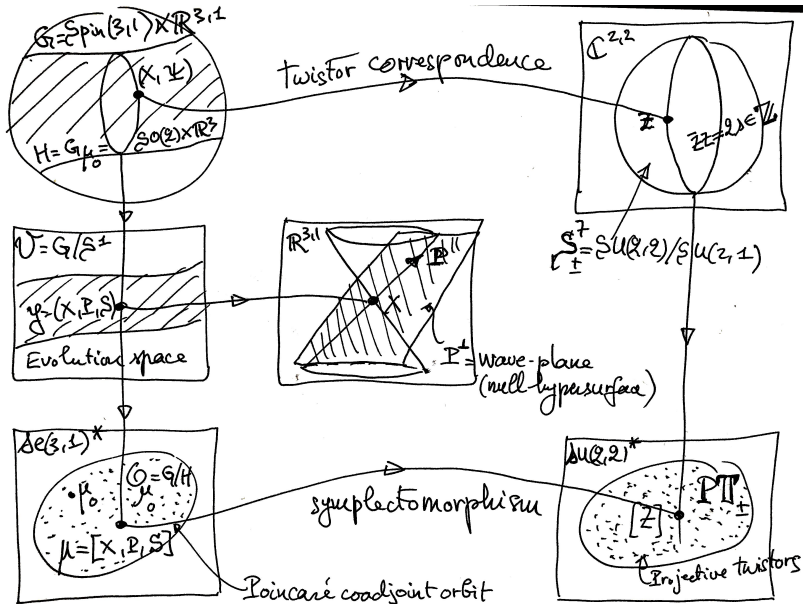 G=Spin(3,1)×ℝ^{3,1}
(X,Ψ)
H=G_{μ₀}=SO(2)×ℝ³
twistor correspondence
ℂ^{2,2}
Z
Z̄Z=2s∈ℤ
S^7_±=SU(2,2)/SU(2,1)
V=G/S¹
y=(X,P,S)
Evolution space
ℝ^{3,1}
P
X
P^⊥=wave-plane
(null-hypersurface)
se(3,1)*
μ₀
O_{μ₀}=G/H
μ=[X,P,S]
Poincaré coadjoint orbit
symplectomorphism
su(2,2)*
Pᵀ_±
[Z]
Projective twistors